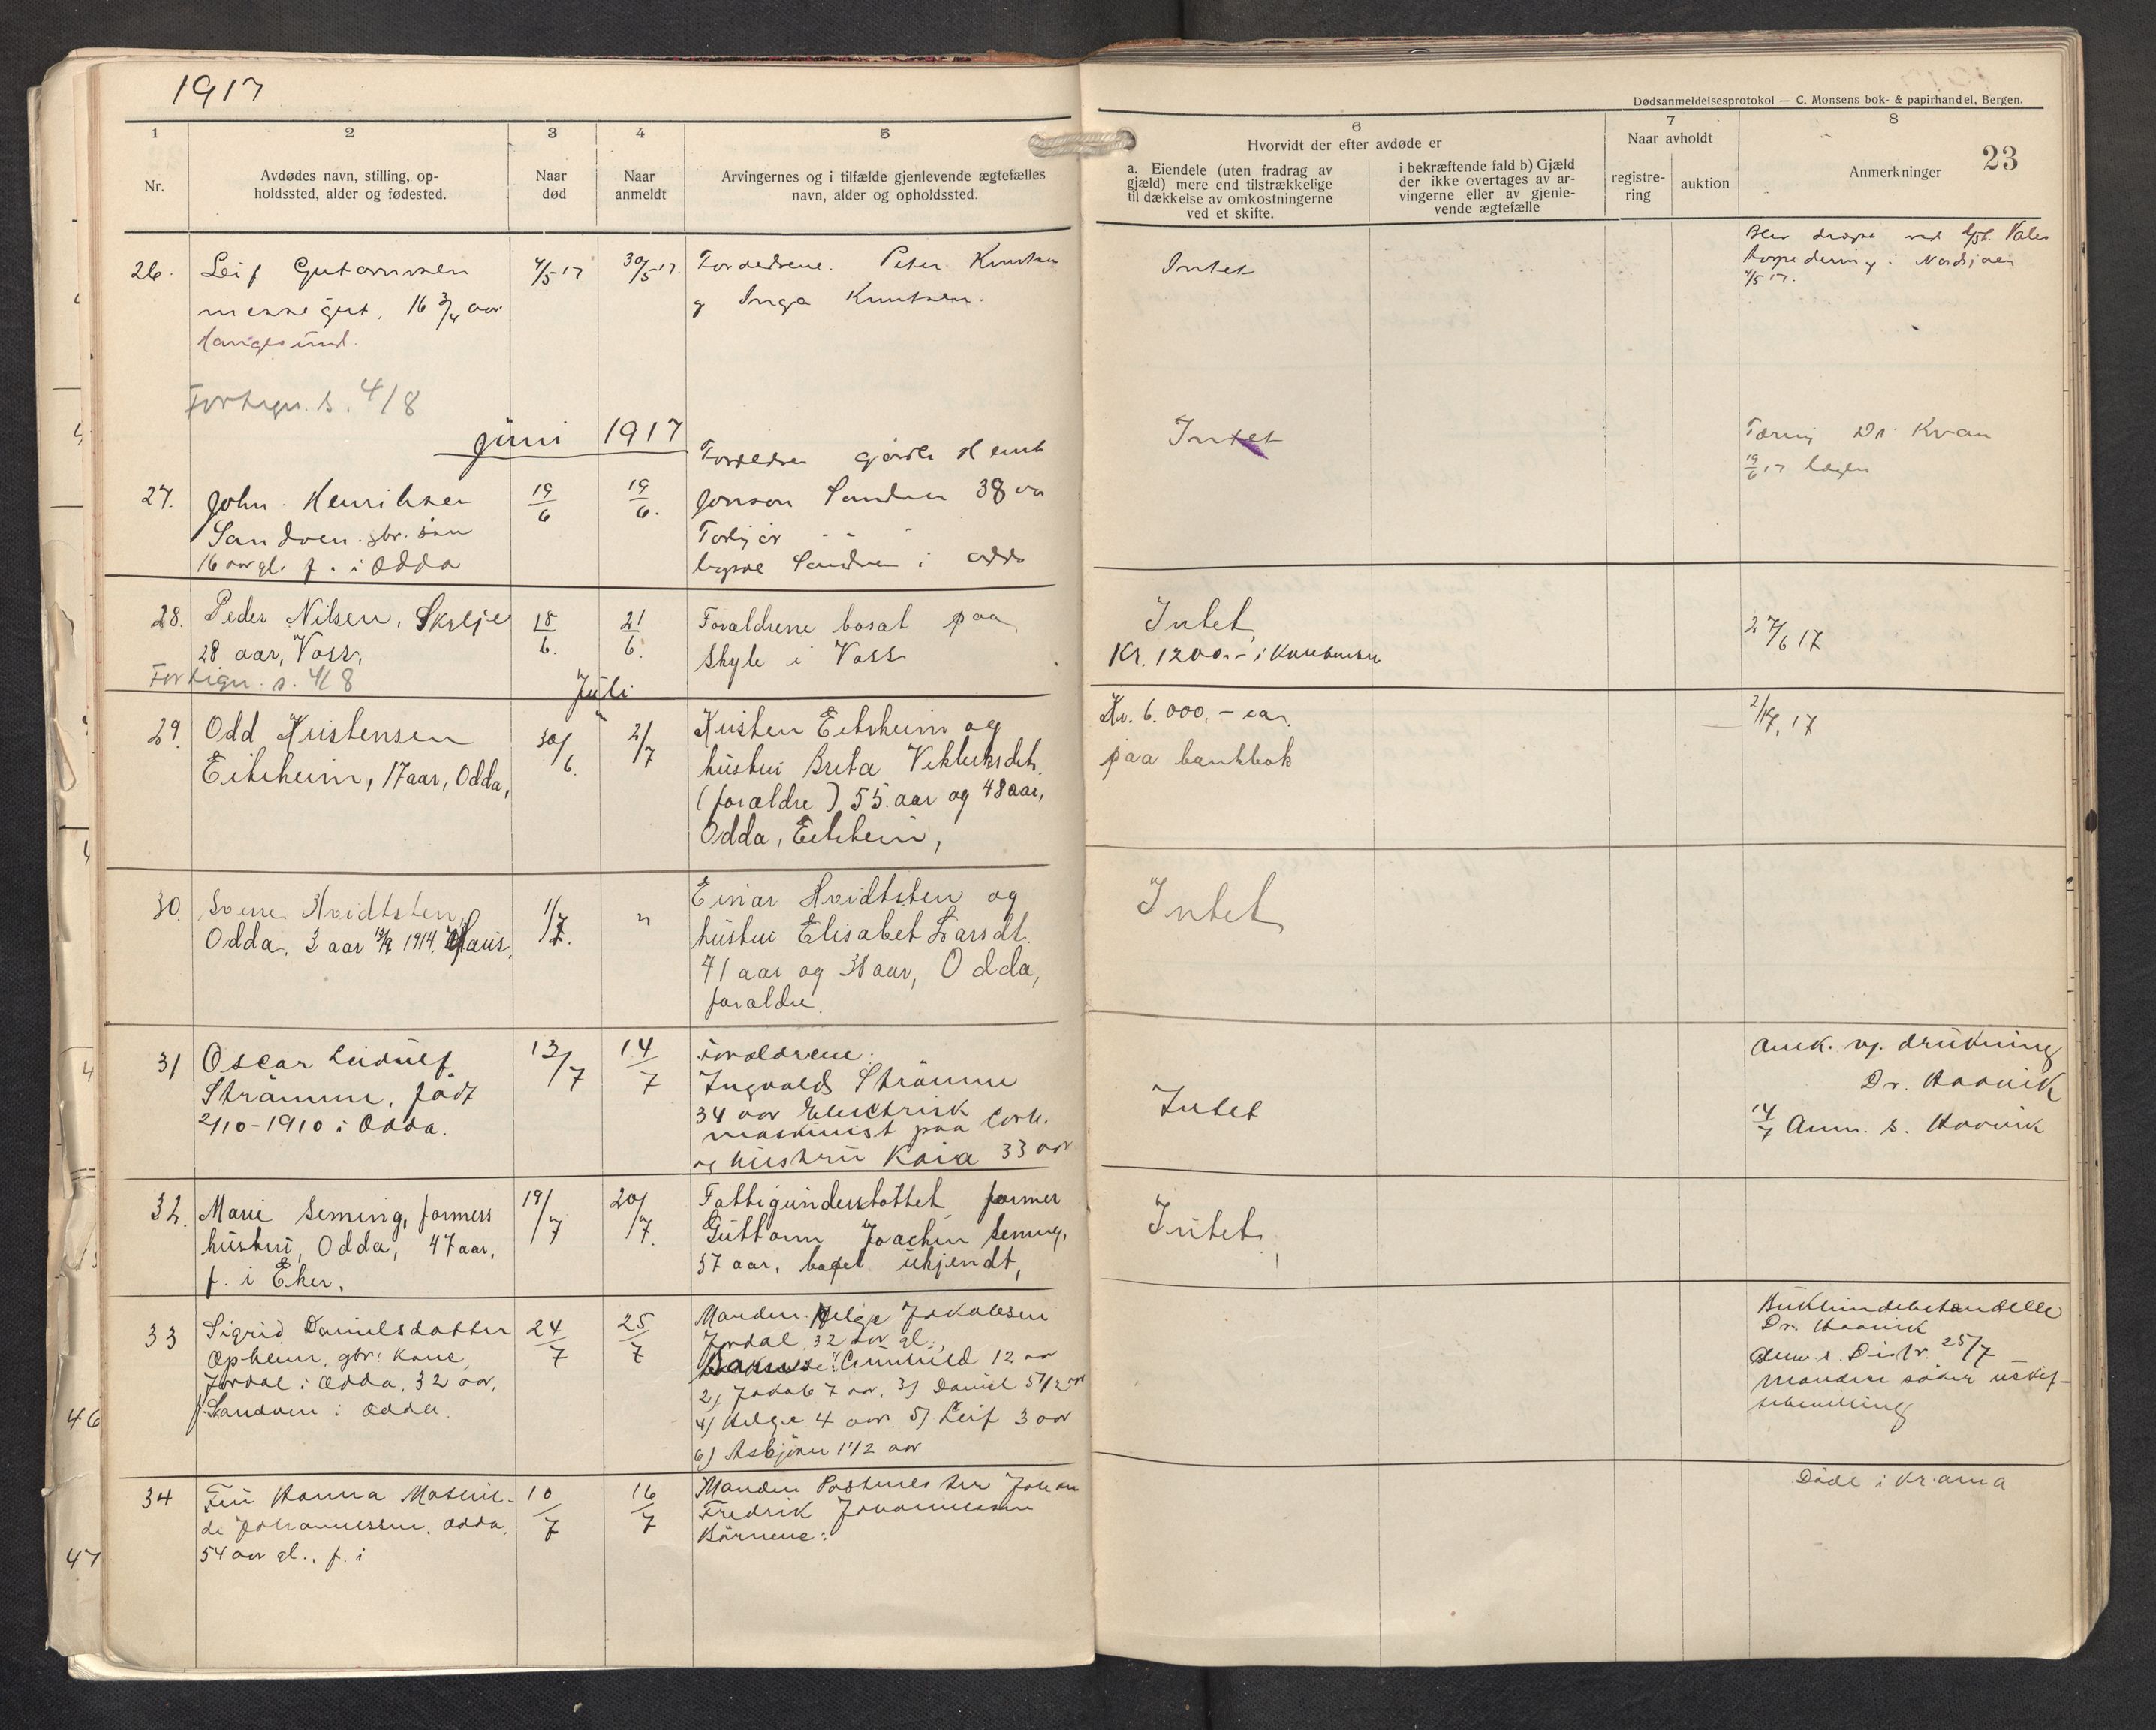 1917
Dødsanmeldelsesprotokol — C. Monsens bok- & papirhandel, Bergen.
23
1
2
3
4
5
6
7
8
Nr.
Avdødes navn, stilling, op-
holdssted, alder og fødested.
Naar
død
Naar
anmeldt
Arvingernes og i tilfælde gjenlevende ægtefælles
navn, alder og opholdssted.
Hvorvidt der efter avdøde er
a. Eiendele (uten fradrag av
gjæld) mere end tilstrækkelige
til dækkelse av omkostningerne
ved et skifte.
i bekræftende fald b) Gjæld
der ikke overtages av ar-
vingerne eller av gjenle-
vende ægtefælle
Naar avholdt
registre-
ring
auktion
Anmerkninger
26.
Leif
messegut, 16 3/4 aar
Haugesund.
4/5 17
30/5 17.
Forældrene. Peter Knutsen
og Inga Knutsen.
Intet
Blev dræpt ved Vales
torpedering i Nordsjøen
4/5 17.
Fortegn. s. 4/8
juni 1917
27.
John Henriksen
Sandven. gbr. søn
16 aar gl. f. i Odda
19/6
19/6.
Forældre
Jonson Sandven 38 aar
Sandven i Odda
Intet
Tæring Dr. Kvan
19/6 17
28.
Peder Nilsen, Skylje
28 aar, Voss,
Fortegn. s. 4/8
18/6.
21/6.
Forældrene bosat paa
Skyle i Voss
Intet,
Kr. 1200.-
27/6 17
Juli
29.
Odd Kristensen
Eitrheim, 17 aar, Odda,
30/6.
2/7
Kristen Eitrheim og
hustru Brita
(forældre) 55 aar og 48 aar,
Odda, Eitrheim,
Kr. 6.000,-
paa bankbok
2/7, 17
30.
Sverre Hvidtsten,
Odda, 3 aar 13/9 1914, Haus,
1/7.
"
Einar Hvidtsten og
hustru Elisabet Larsdt.
41 aar og 38 aar, Odda,
forældre.
Intet
31
Oscar Leidulf
Strømme, født
2/10-1910 i Odda.
13/7
14/7
Forældrene:
Ingvald Strømme
34 aar Electrisk
maskinist paa Carb.
og hustru Kaia 33 aar
Intet
Anm. ap. drukning
Dr. Haavik
14/7 Anm. s. Haavik
32.
Marie Seming, formers
hustru, Odda, 47 aar,
f. i Eker,
19/7
20/7.
Fattigunderstøttet former
Guttorm Joachim Seming,
57 aar, bopel ukjendt,
Intet
33
Sigrid Danielsdatter
Opheim, gbr. kone,
Jordal i Odda, 32 aar,
f. Sandven i Odda.
24/7
25/7
Manden Helge Jakobsen
Jordal, 32 aar gl.,
Barnene: 1/ Gunhild 12 aar
2) Jakob 7 aar, 3) Daniel 5 1/2 aar
4) Helge 4 aar 5) Leif 3 aar
6) Asbjørn 1 1/2 aar
Bukhindebetændelse
Dr. Haavik
Anm. s. Distr. 25/7
Manden søker uskif-
tebevilling
34
Fru Hanna Mathil-
de Johannessen, Odda,
54 aar gl., f. i
10/7
16/7
Manden Postmester Johan
Fredrik Johannessen
Børnene:
Døde i Kr.ania
46
47